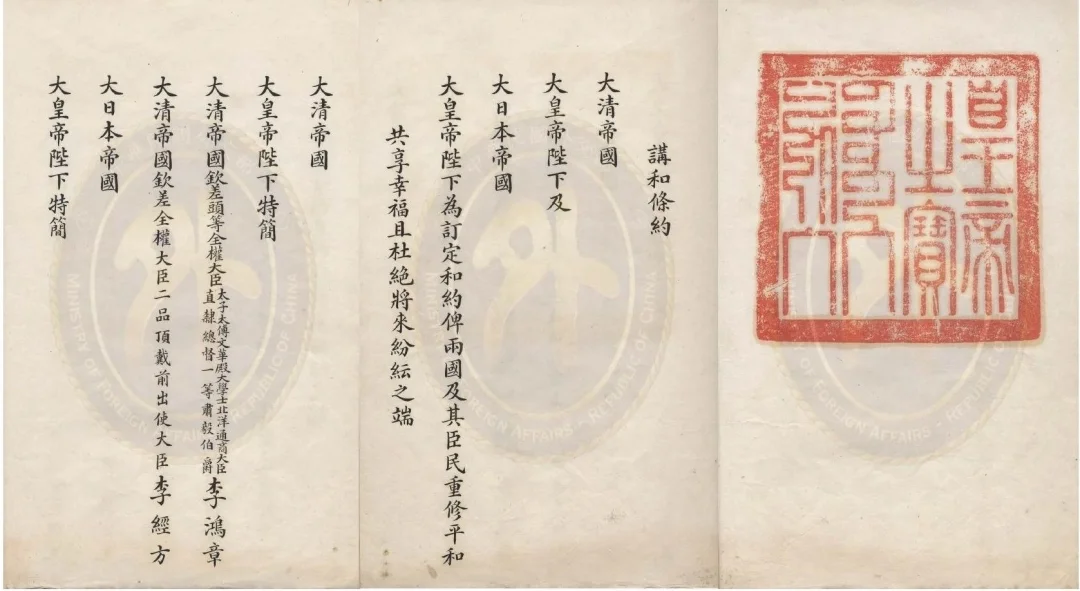 皇帝
之寶
講和條約
大清帝國
大皇帝陛下及
大日本帝國
大皇帝陛下為訂定和約俾兩國及其臣民重修平和
共享幸福且杜絕將來紛紜之端
大清帝國
大皇帝陛下特簡
大清帝國欽差頭等全權大臣太子太傅文華殿大學士北洋通商大臣直隸總督一等肅毅伯爵李鴻章
大清帝國欽差全權大臣二品頂戴前出使大臣李經方
大日本帝國
大皇帝陛下特簡
外
MINISTRY OF FOREIGN AFFAIRS · REPUBLIC OF CHINA